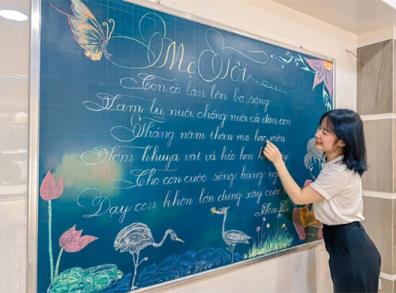 Mẹ Tôi
Con cò lặn lội bờ sông
Tam tú nuôi chồng nuôi cả đàn con
Tháng năm thân mẹ hao mòn
Sớm khuya vất vả héo hon
Cho con cuộc sống hàng
Dạy con khôn lớn dựng xây cuộc